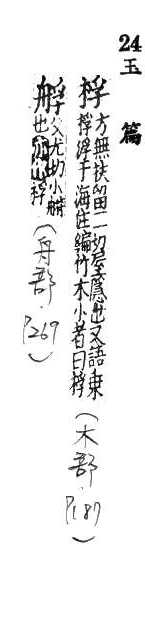 24
玉篇
桴 方無扶留二切屋隱也又語乗
桴浮于海注編竹木小者曰桴（木部．P187）
艀 父尤切小䑧
艀也亦作桴（舟部．P269）